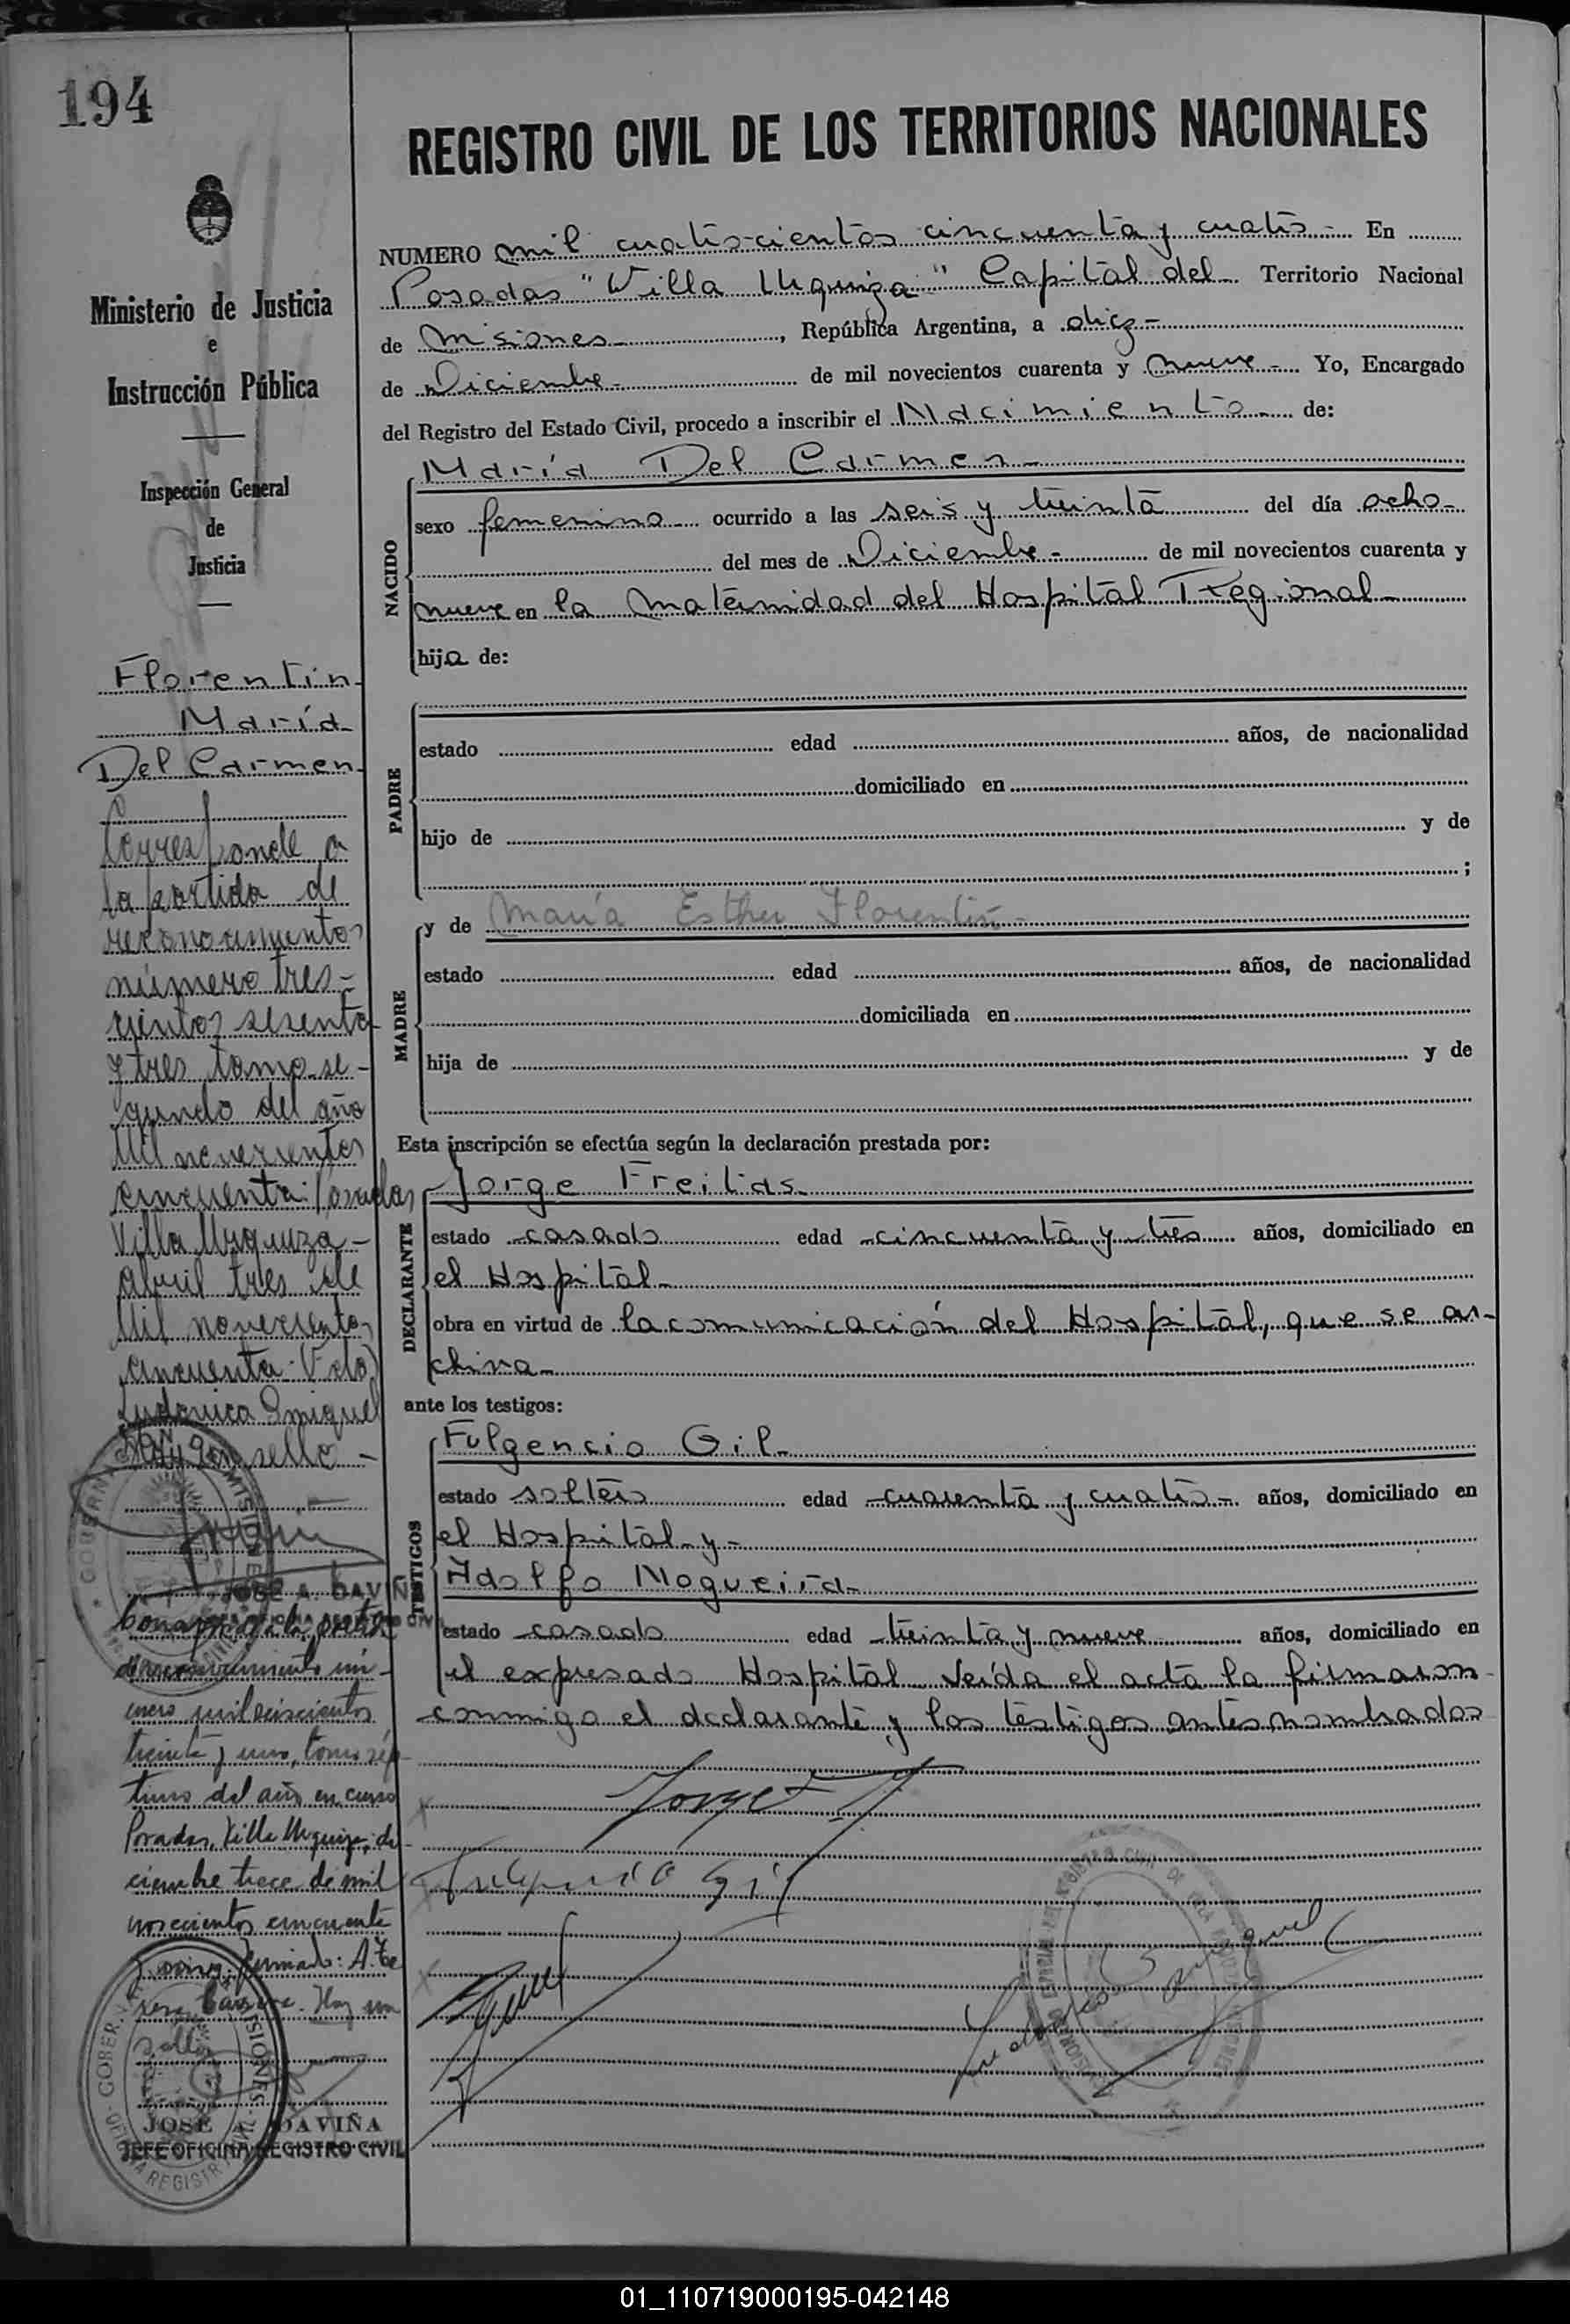 194
REGISTRO CIVIL DE LOS TERRITORIOS NACIONALES
Ministerio de Justicia
e
Instrucción Pública
Inspección General
de
Justicia
Florentin
María
Del Carmen
Corresponde a
la partida de
reconocimientos
número tres-
cientos sesenta
y tres tomo se-
gundo del año
Mil novecientos
cincuenta. Posadas
Villa Urquiza-
abril tres de
Mil novecientos
cincuenta. (Fdo)
Ludovica Imiquel
Hay un sello-
JOSE A. DAVIÑA
de reconocimiento nú-
mero mil seiscientos
treinta y uno, tomo sép-
timo del año en curso
Posadas, Villa Urquiza, di-
ciembre trece de mil
novecientos cincuenta
Firmado: A. Te
resa Hay un
sello
JOSE DAVIÑA
JEFE OFICINA REGISTRO CIVIL
NUMERO mil cuatrocientos cincuenta y cuatro- En
Posadas "Villa Urquiza" Capital del- Territorio Nacional
de Misiones-, República Argentina, a diez-
de Diciembre- de mil novecientos cuarenta y nueve- Yo, Encargado
del Registro del Estado Civil, procedo a inscribir el Nacimiento- de:
María Del Carmen-
NACIDO
sexo femenino ocurrido a las seis y treinta del día ocho-
del mes de Diciembre- de mil novecientos cuarenta y
nueve en la Maternidad del Hospital Regional-
hija de:
PADRE
estado edad años, de nacionalidad
domiciliado en
hijo de y de
;
MADRE
y de María Esther Florentin-
estado edad años, de nacionalidad
domiciliada en
hija de y de
Esta inscripción se efectúa según la declaración prestada por:
DECLARANTE
Jorge Freitas-
estado casado edad cincuenta y tres años, domiciliado en
el Hospital-
obra en virtud de la comunicación del Hospital, que se ar-
chiva-
ante los testigos:
TESTIGOS
Fulgencio Gil-
estado soltero edad cuarenta y cuatro- años, domiciliado en
el Hospital y-
Adolfo Nogueira-
estado casado edad treinta y nueve años, domiciliado en
el expresado Hospital Leída el acta la firmaron
conmigo el declarante y los testigos antes nombrados
Jorge F
Fulgencio Gil
01_110719000195-042148